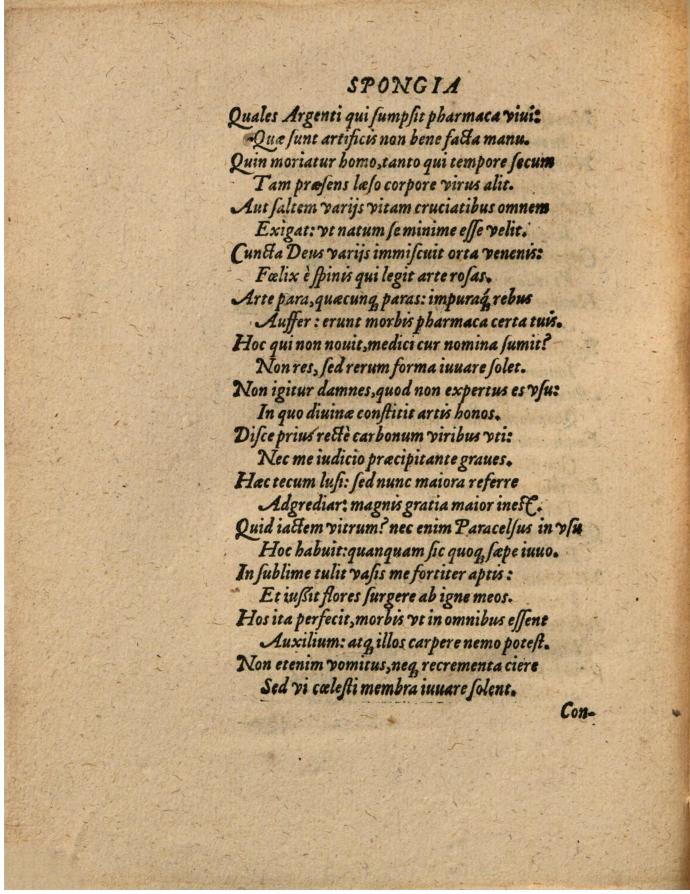 SPONGIA
Quales Argenti qui ſumpſit pharmaca viui:
Quæ ſunt artificis non bene facta manu.
Quin moriatur homo, tanto qui tempore ſecum
Tam præſens læſo corpore virus alit.
Aut ſaltem varijs vitam cruciatibus omnem
Exigat: vt natum ſe minime eſſe velit.
Cuncta Deus varijs immiſcuit orta venenis:
Fœlix è ſpinis qui legit arte roſas.
Arte para, quæcunq; paras: impuraq́; rebus
Auffer: erunt morbis pharmaca certa tuis.
Hoc qui non nouit, medici cur nomina ſumit?
Non res, ſed rerum forma iuuare ſolet.
Non igitur damnes, quod non expertus es vſu:
In quo diuinæ conſtitit artis honos.
Diſce prius rectè carbonum viribus vti:
Nec me iudicio præcipitante graues.
Hæc tecum luſi: ſed nunc maiora referre
Adgrediar: magnis gratia maior ineſt.
Quid iactem vitrum? nec enim Paracelſus in vſu
Hoc habuit: quanquam ſic quoq; ſæpe iuuo.
In ſublime tulit vaſis me fortiter aptis:
Et iußit flores ſurgere ab igne meos.
Hos ita perfecit, morbis vt in omnibus eſſent
Auxilium: atq; illos carpere nemo poteſt.
Non etenim vomitus, neq; recrementa ciere
Sed vi cœleſti membra iuuare ſolent.
Con-